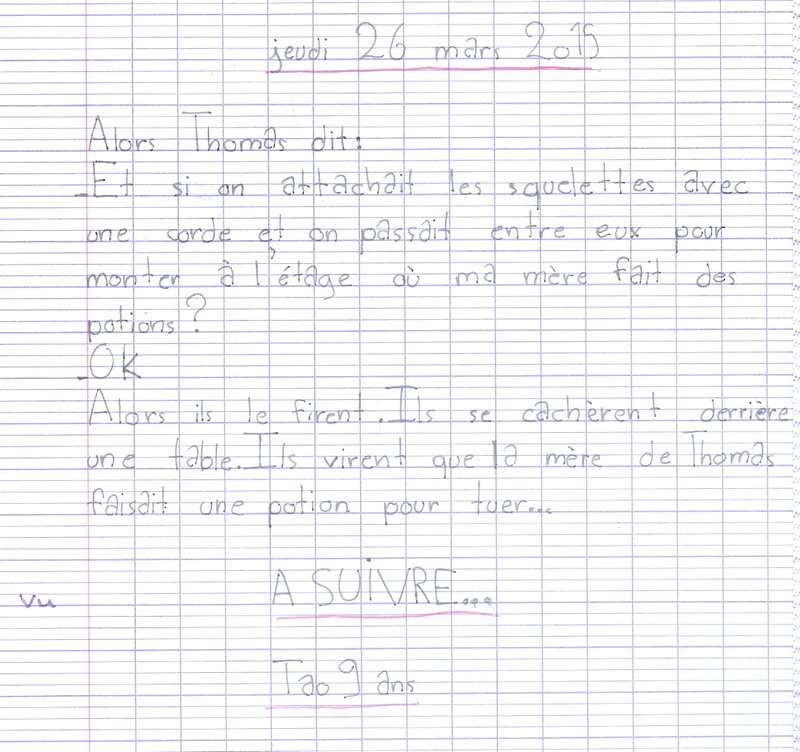 jeudi 26 mars 2015
Alors Thomas dit:
_Et si on attachait les squelettes avec
une corde et on passait entre eux pour
monter à l'étage où ma mère fait des
potions?
_OK
Alors ils le firent. Ils se cachèrent derrière
une table. Ils virent que la mère de Thomas
faisait une potion pour tuer...
A SUiVRE...
vu
Tao 9 ans